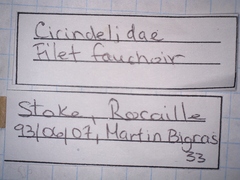 Cicindelidae
Filet fauchoir
Stoke, Rocaille
93/06/07, Martin Bigras
33